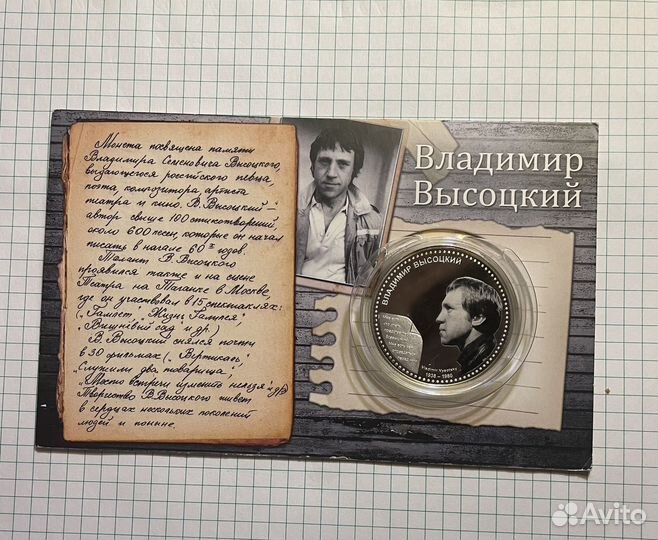 Монета посвящена памяти
Владимира Семеновича Высоцкого,
выдающегося российского певца,
поэта, композитора, артиста
театра и кино. В. Высоцкий -
автор свыше 100 стихотворений,
около 600 песен, которые он начал
писать в начале 60х годов.
Талант В. Высоцкого
проявился также и на сцене
Театра на Таганке в Москве,
где он участвовал в 15 спектаклях:
("Гамлет", "Жизнь Галилея",
"Вишневый сад" и др.)
В. Высоцкий снялся почти
в 30 фильмах ("Вертикаль",
"Служили два товарища",
"Место встречи изменить нельзя" и др.)
Творчество В. Высоцкого живет
в сердцах нескольких поколений
людей и поныне.
Владимир
Высоцкий
ВЛАДИМИР ВЫСОЦКИЙ
Vladimir Vysotskiy
1938 - 1980
Avito